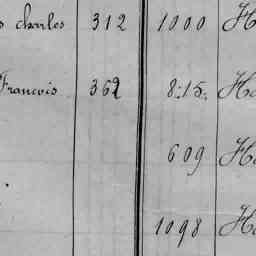 charles 312 1000
Francois 362 815
609
1098